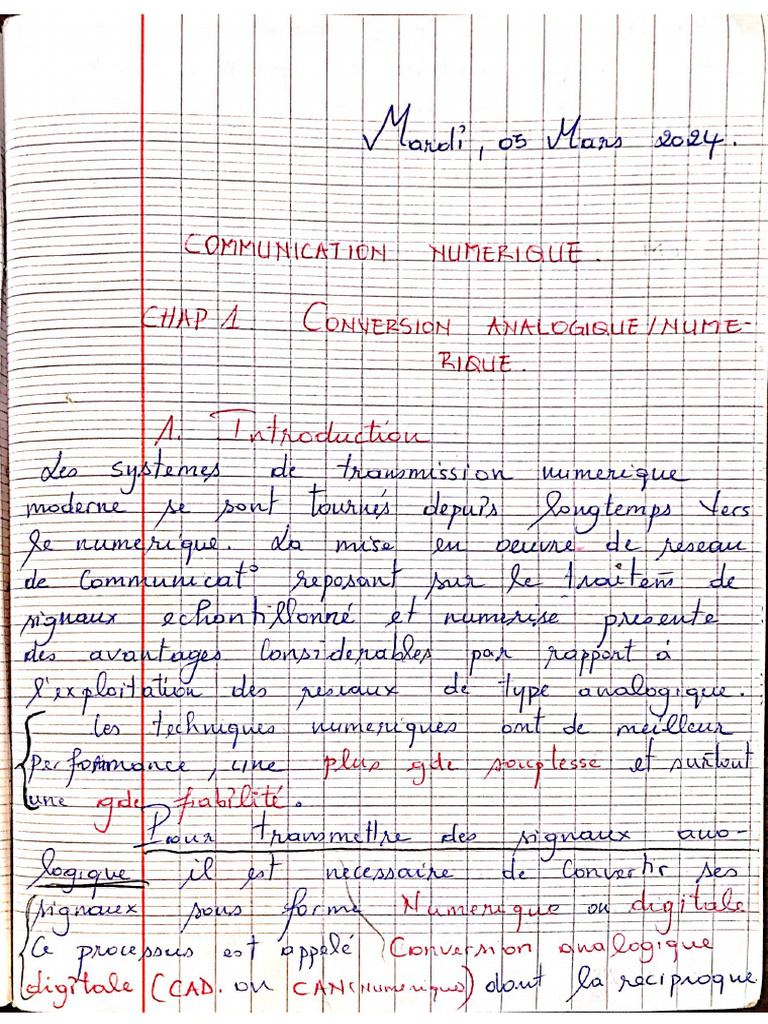 Mardi, 05 Mars 2024.
COMMUNICATION NUMERIQUE.
CHAP 1 CONVERSION ANALOGIQUE/NUME-
RIQUE.
1. Introduction
Les systemes de transmission numerique
moderne se sont tournés depuis longtemps vers
le numerique. La mise en oeuvre de reseau
de Communicat° reposant sur le traitem̄ de
signaux echantillonné et numerise presente
des avantages Considerables par rapport à
l'exploitation des reseaux de type analogique.
Les techniques numeriques ont de meilleur
performance, une plus gde souplesse et surtout
une gde fiabilité.
Pour transmettre des signaux ana-
logique il est necessaire de Convertir ses
signaux sous forme Numerique ou digitale
Ce processus est appelé Conversion analogique
digitale (CAD. ou CAN(Numerique)) dont la reciproque